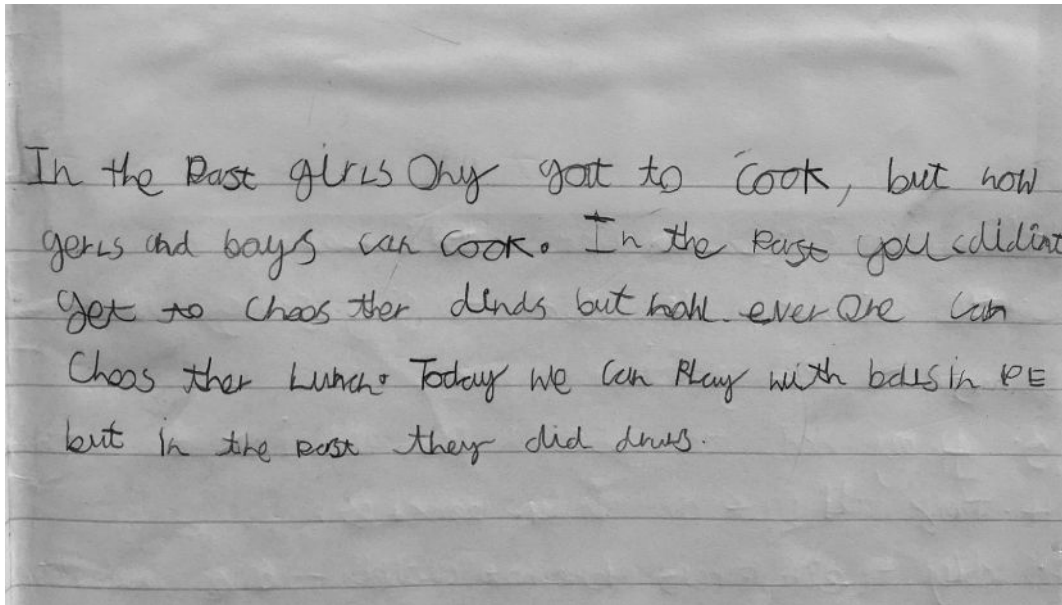 In the Past girls Ony gott to cook, but now
gerls and boys can cook. In the Past you didint
get to choos ther but ever One can
Choos ther Lunch. Today we can Play with balls in PE
but in the past they did